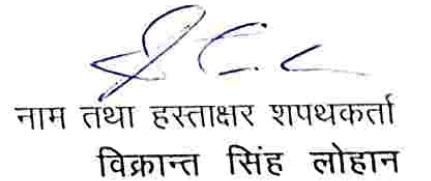 नाम तथा हस्ताक्षर शपथकर्ता
विक्रान्त सिंह लोहान